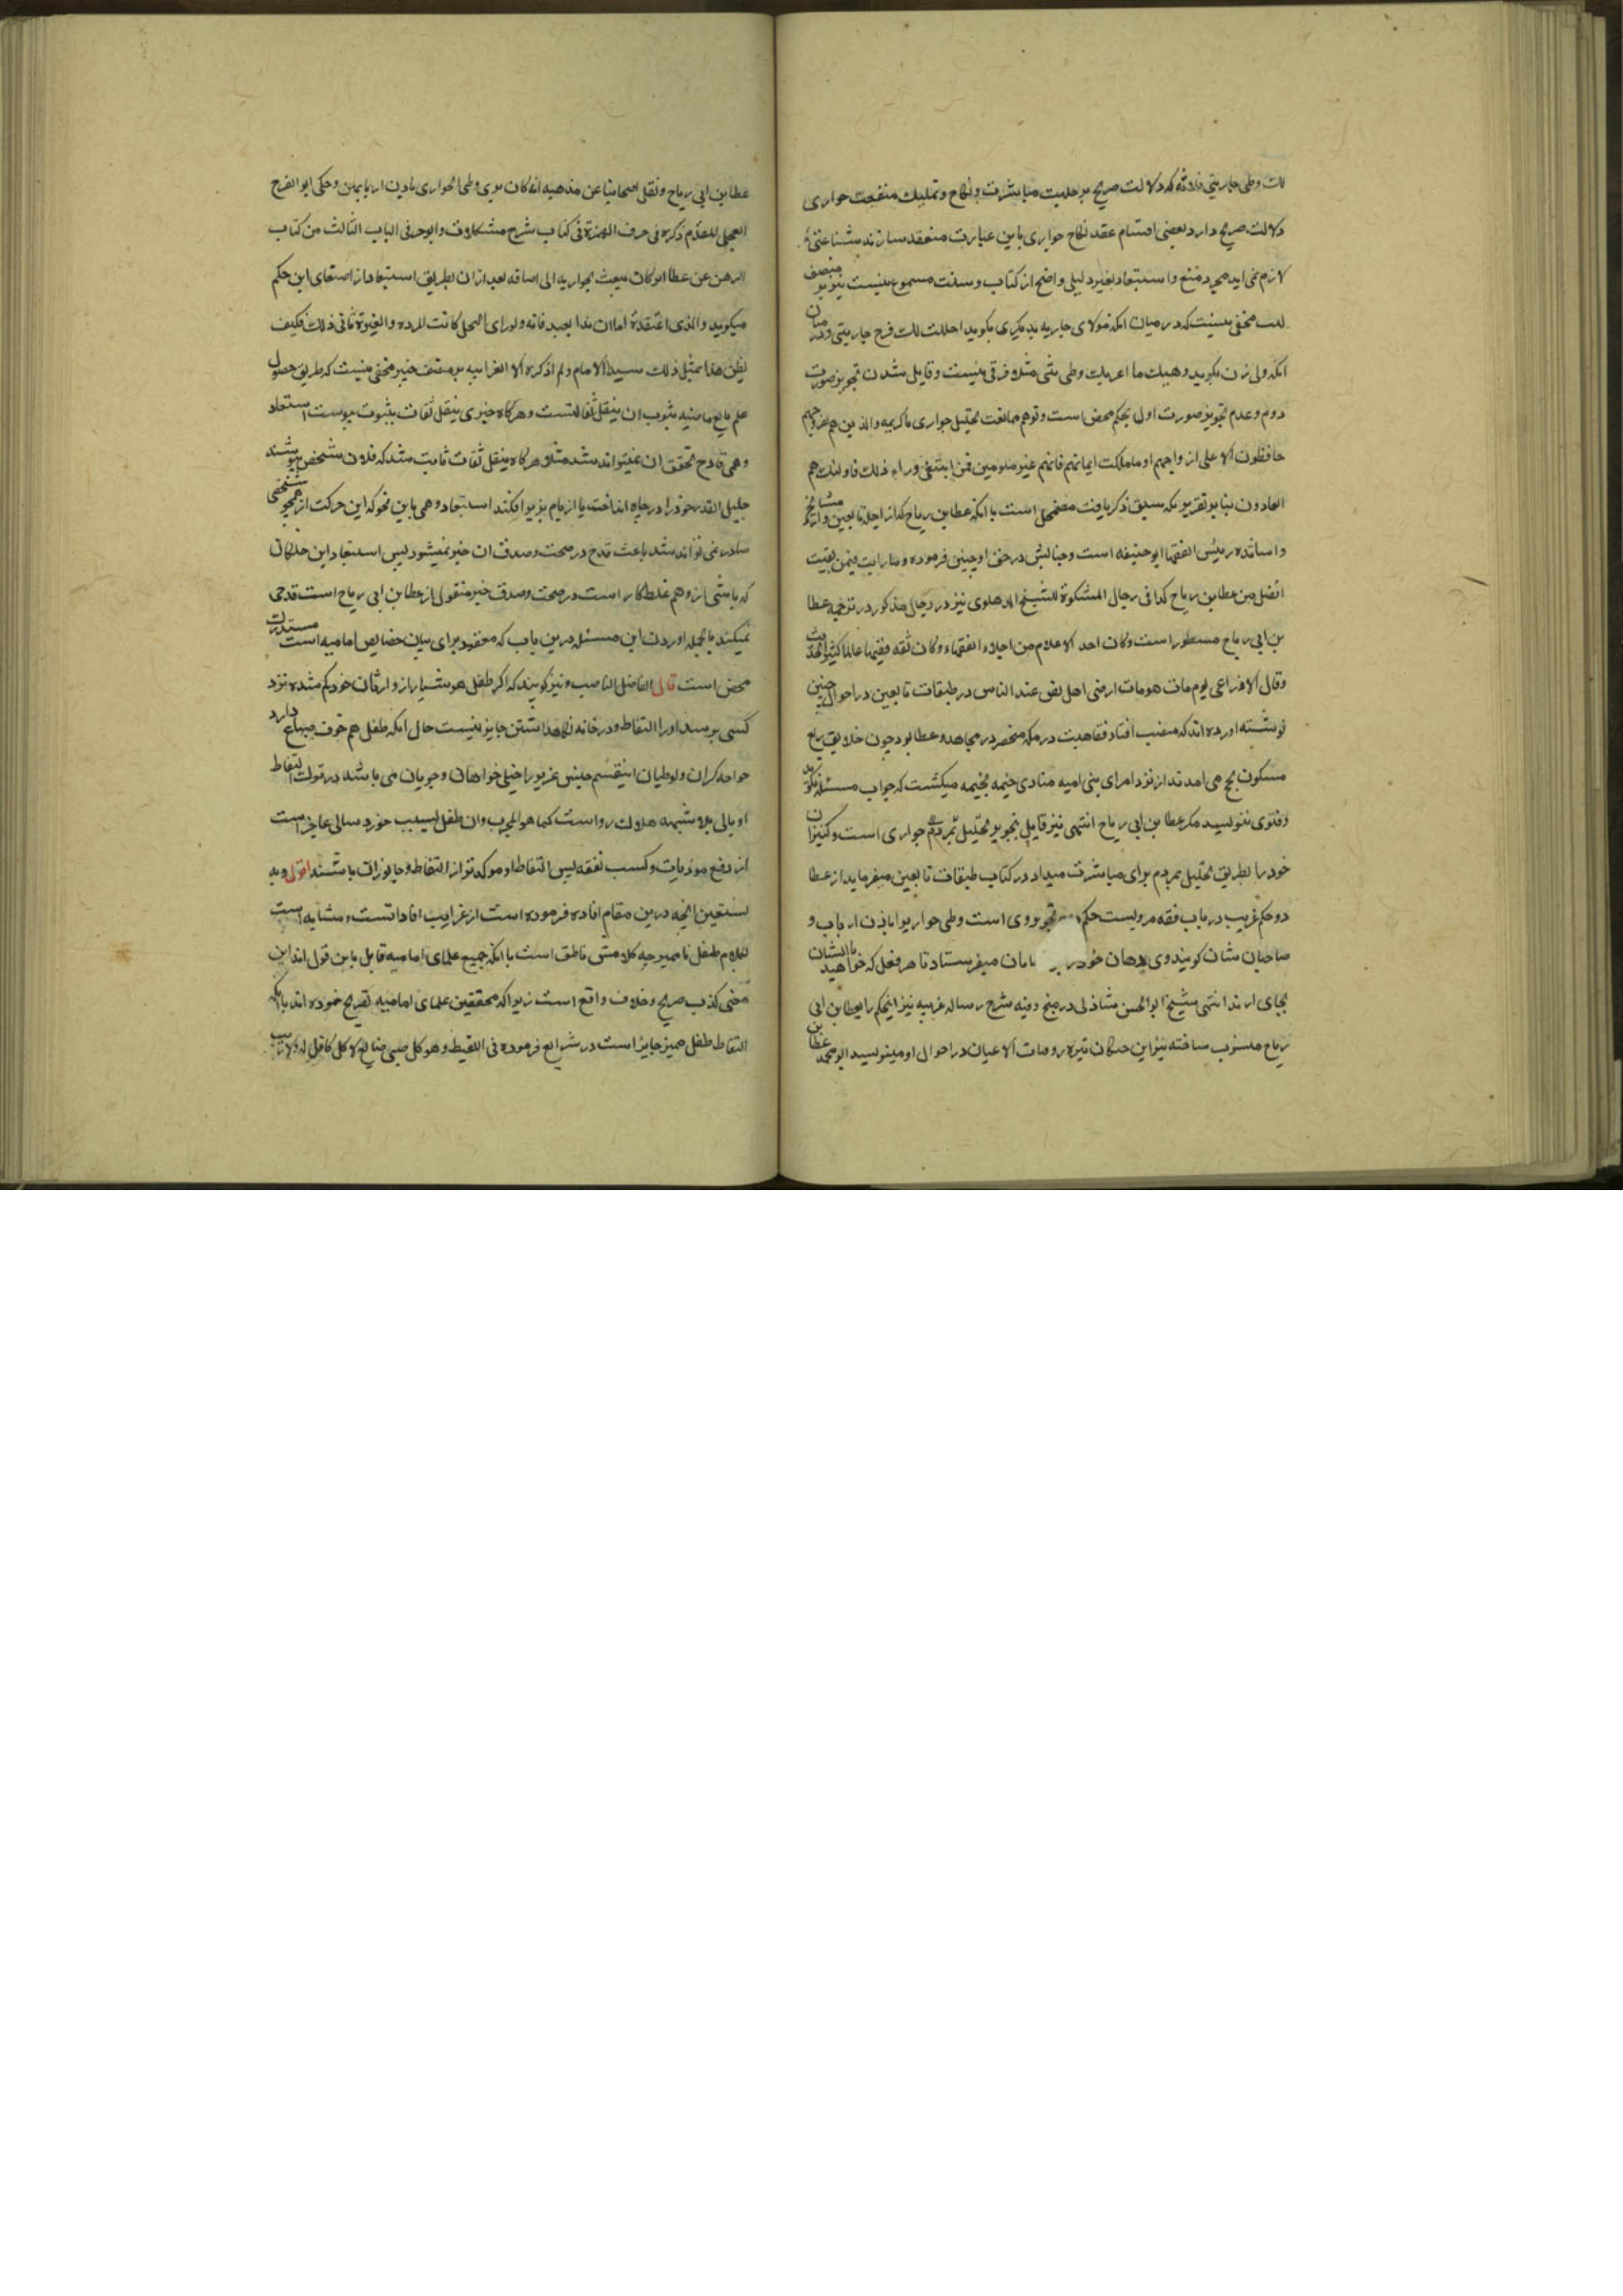 لك وطی جاریتی فلانة که دلالت صریح بر حلیت مباشرت و نکاح و تملیک منفعت جواری
دلالت صریح دارد بعضی اقسام عقد نکاح جواری باین عبارت منعقد سازند شناعتی
لازم نمی اید مجرد منع و استبعاد بغیر دلیلی واضح از کتاب و سنت مسموع نیست بر منصف
مخفی نیست که در میان انکه مولای جاریه بدیگری بگوید احللت لك فرج جاریتی و در میان
انکه ولی زن بگوید وهبتك ما وطی بنتی مثلا فرقی نیست و قایل شدن تجویز صورت
دوم و عدم تجویز صورت اول تحکم محض است و توهم ممانعت تحلیل جواری باکریمه والذین هم لفروجهم
حافظون الا علی ازواجهم او ما ملکت ایمانهم فانهم غیر ملومین فمن ابتغی وراء ذلك فاولئك هم
العادون بنا بر تقریر که سبق ذکر یافت مضمحل است با انکه عطا بن رباح که از اجله تابعین و از مشایخ
و اساتذه رییس الفقها ابو حنیفه است و جنابش در حق او چنین فرموده و ما رایت فیمن لقیت
افضل من عطا بن رباح کذا فی رجال المشکوة للشیخ الدهلوی نیز در رجال مذکور در ترجمه عطا
بن ابی رباح مسطور است وکان احد الاعلام من اجلاء الفقهاء وکان ثقه فقیها عالما کثیر الحدیث
وقال الاوزاعی یوم مات هو مات ارضی اهل الارض عند الناس در طبقات تابعین در احوال چنین
نوشته اورده اند که منصب افتا و فقاهت در مکه منحصر در مجاهد و عطا بود چون خلایق ربع
مسکون بحج می امدند از نزد امرای بنی امیه منادی خیمه بخیمه میکشت که جواب مسئله نکوید
و فتوی ننویسد مکر عطا بن ابی رباح انتهی نیز قایل بتجویز تحلیل جواری است و کنیزان
خود را بطریق تحلیل بمردم برای مباشرت میداد در کتاب طبقات تابعین میفرماید از عطا
دو حکم غریب در باب فقه مرویست حکم تجویز وی است وطی جواریرا باذن ارباب و
صاحبان شان کویند وی خود میفرستاد تا هر فعل که خواهید با ایشان
بجای ارند انتهی شیخ ابو الحسن شاذلی در شرح رساله غربیه نیز اینحکم را بعطا بن ابی
رباح منسوب ساخته نیز ابن خلکان در وفیات الاعیان در احوال او مینویسد ابو محمد عطا بن
عطا بن ابی رباح ونقل اصحابنا عن مذهبه انه کان یری وطی الجواری باذن اربابهن وحکی ابو الفرج
العجلی المقدم ذکره فی حرف الهمزة فی کتاب شرح مشکلات والوجیز فی الباب الثالث من کتاب
الرهن عن عطا انه کان یبعث بجواریه الی اضیافه بعد ازان بطریق استبعاد از استماع این حکم
میکوید والذی اعتقده انا ان هذا بعید فانه لو رای الحل کانت المروة والغیرة تابی ذلك فکیف
یظن هذا بمثل ذلك السید الامام ولم اذکره الا لغرابته بر منصف خبیر مخفی نیست که طریق حصول
علم وقایع ماضیه ان بنقل ثقاتست و هرکاه خبری بنقل ثقات بثبوت پیوست استبعاد
وهمی قادح تحقق ان نمیتواند شد مثلا هرکاه بنقل ثقات ثابت شد که فلان شخص
جلیل القدر خود را در چاه انداخت یا از بام بزیر افکند استبعاد وهمی باین نحو که این حرکت از همچو شخصی
صادر نمی تواند شد باعث قدح در صحت و صدق ان خبر نمیشود پس استبعاد ابن خلکان
که ناشی از وهم غلطکار است در صحت و صدق خبر منقول از عطا بن ابی رباح است قدحی
نمیکند بالجمله اوردن این مسئله درین باب که معقود برای بیان خصایص امامیه است مستدرك
محض است قال الفاضل الناصب و نیز کویند که اکر طفل هوشیار از وارثان خود کم شده نزد
کسی برسد او را التقاط و در خانه نکاهداشتن جایز نیست حال انکه طفل هم خوف ضیاع دارد
کران و لوطیان اینقسم جنس عزیز را خیلی خواهان و جویان می باشند در فوت التقاط
او بلا شبهه هلاك رواست کما هو المجرب و ان طفل بسبب خورد سالی عاجز است
از دفع موذیات و کسب نفقه پس التقاط او موکدتر از التقاط جانوران باشند اقول وبه
نستعین انچه درین مقام افاده فرموده است از غرایب افاداتست و مشابه است
بکلام طفل ناممیز چه کلامش ناطق است با انکه جمیع علمای امامیه قایل باین قول اند این
معنی کذب صریح و خلاف واقع است زیرا که محققین علمای امامیه تصریح نموده اند بانکه
التقاط طفل ممیز جایز است در شرایع فرموده فی اللقیط وهو کل صبی ضایع لا کافل له